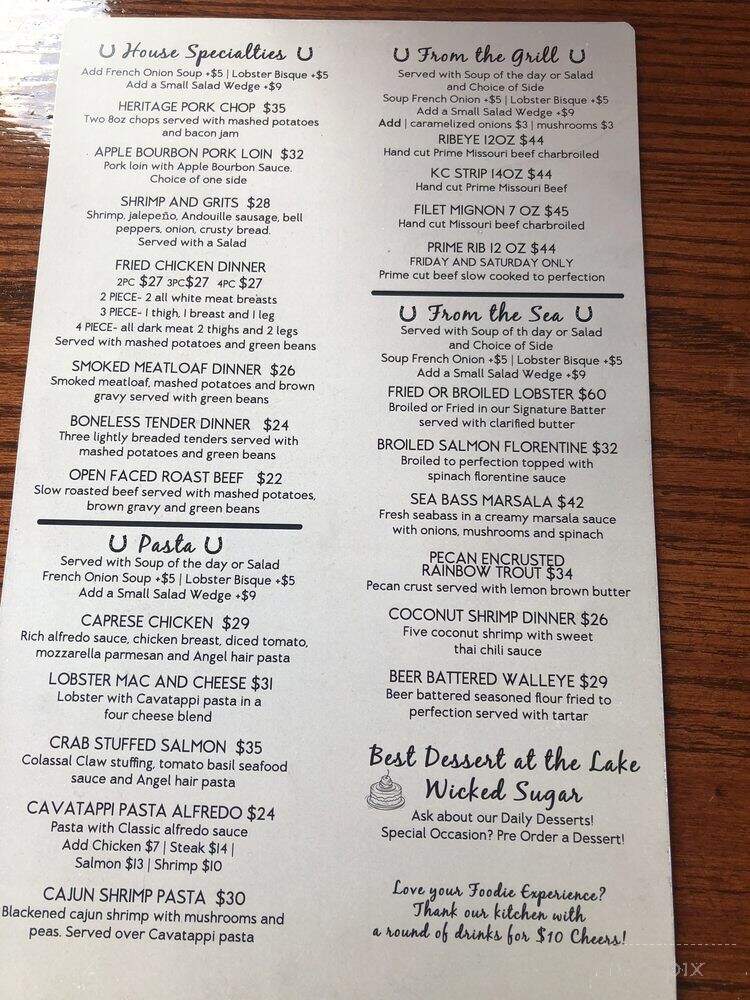 House Specialties
Add French Onion Soup +$5 | Lobster Bisque +$5
Add a Small Salad Wedge +$9
HERITAGE PORK CHOP $35
Two 8oz chops served with mashed potatoes
and bacon jam
APPLE BOURBON PORK LOIN $32
Pork loin with Apple Bourbon Sauce.
Choice of one side
SHRIMP AND GRITS $28
Shrimp, jalepeño, Andouille sausage, bell
peppers, onion, crusty bread.
Served with a Salad
FRIED CHICKEN DINNER
2PC $27 3PC $27 4PC $27
2 PIECE- 2 all white meat breasts
3 PIECE- 1 thigh, 1 breast and 1 leg
4 PIECE- all dark meat 2 thighs and 2 legs
Served with mashed potatoes and green beans
SMOKED MEATLOAF DINNER $26
Smoked meatloaf, mashed potatoes and brown
gravy served with green beans
BONELESS TENDER DINNER $24
Three lightly breaded tenders served with
mashed potatoes and green beans
OPEN FACED ROAST BEEF $22
Slow roasted beef served with mashed potatoes,
brown gravy and green beans
Pasta
Served with Soup of the day or Salad
French Onion Soup +$5 | Lobster Bisque +$5
Add a Small Salad Wedge +$9
CAPRESE CHICKEN $29
Rich alfredo sauce, chicken breast, diced tomato,
mozzarella parmesan and Angel hair pasta
LOBSTER MAC AND CHEESE $31
Lobster with Cavatappi pasta in a
four cheese blend
CRAB STUFFED SALMON $35
Colassal Claw stuffing, tomato basil seafood
sauce and Angel hair pasta
CAVATAPPI PASTA ALFREDO $24
Pasta with Classic alfredo sauce
Add Chicken $7 | Steak $14 |
Salmon $13 | Shrimp $10
CAJUN SHRIMP PASTA $30
Blackened cajun shrimp with mushrooms and
peas. Served over Cavatappi pasta
From the Grill
Served with Soup of the day or Salad
and Choice of Side
Soup French Onion +$5 | Lobster Bisque +$5
Add a Small Salad Wedge +$9
Add | caramelized onions $3 | mushrooms $3
RIBEYE 12OZ $44
Hand cut Prime Missouri beef charbroiled
KC STRIP 14OZ $44
Hand cut Prime Missouri Beef
FILET MIGNON 7 OZ $45
Hand cut Missouri beef charbroiled
PRIME RIB 12 OZ $44
FRIDAY AND SATURDAY ONLY
Prime cut beef slow cooked to perfection
From the Sea
Served with Soup of th day or Salad
and Choice of Side
Soup French Onion +$5 | Lobster Bisque +$5
Add a Small Salad Wedge +$9
FRIED OR BROILED LOBSTER $60
Broiled or Fried in our Signature Batter
served with clarified butter
BROILED SALMON FLORENTINE $32
Broiled to perfection topped with
spinach florentine sauce
SEA BASS MARSALA $42
Fresh seabass in a creamy marsala sauce
with onions, mushrooms and spinach
PECAN ENCRUSTED
RAINBOW TROUT $34
Pecan crust served with lemon brown butter
COCONUT SHRIMP DINNER $26
Five coconut shrimp with sweet
thai chili sauce
BEER BATTERED WALLEYE $29
Beer battered seasoned flour fried to
perfection served with tartar
Best Dessert at the Lake
Wicked Sugar
Ask about our Daily Desserts!
Special Occasion? Pre Order a Dessert!
Love your Foodie Experience?
Thank our kitchen with
a round of drinks for $10 Cheers!